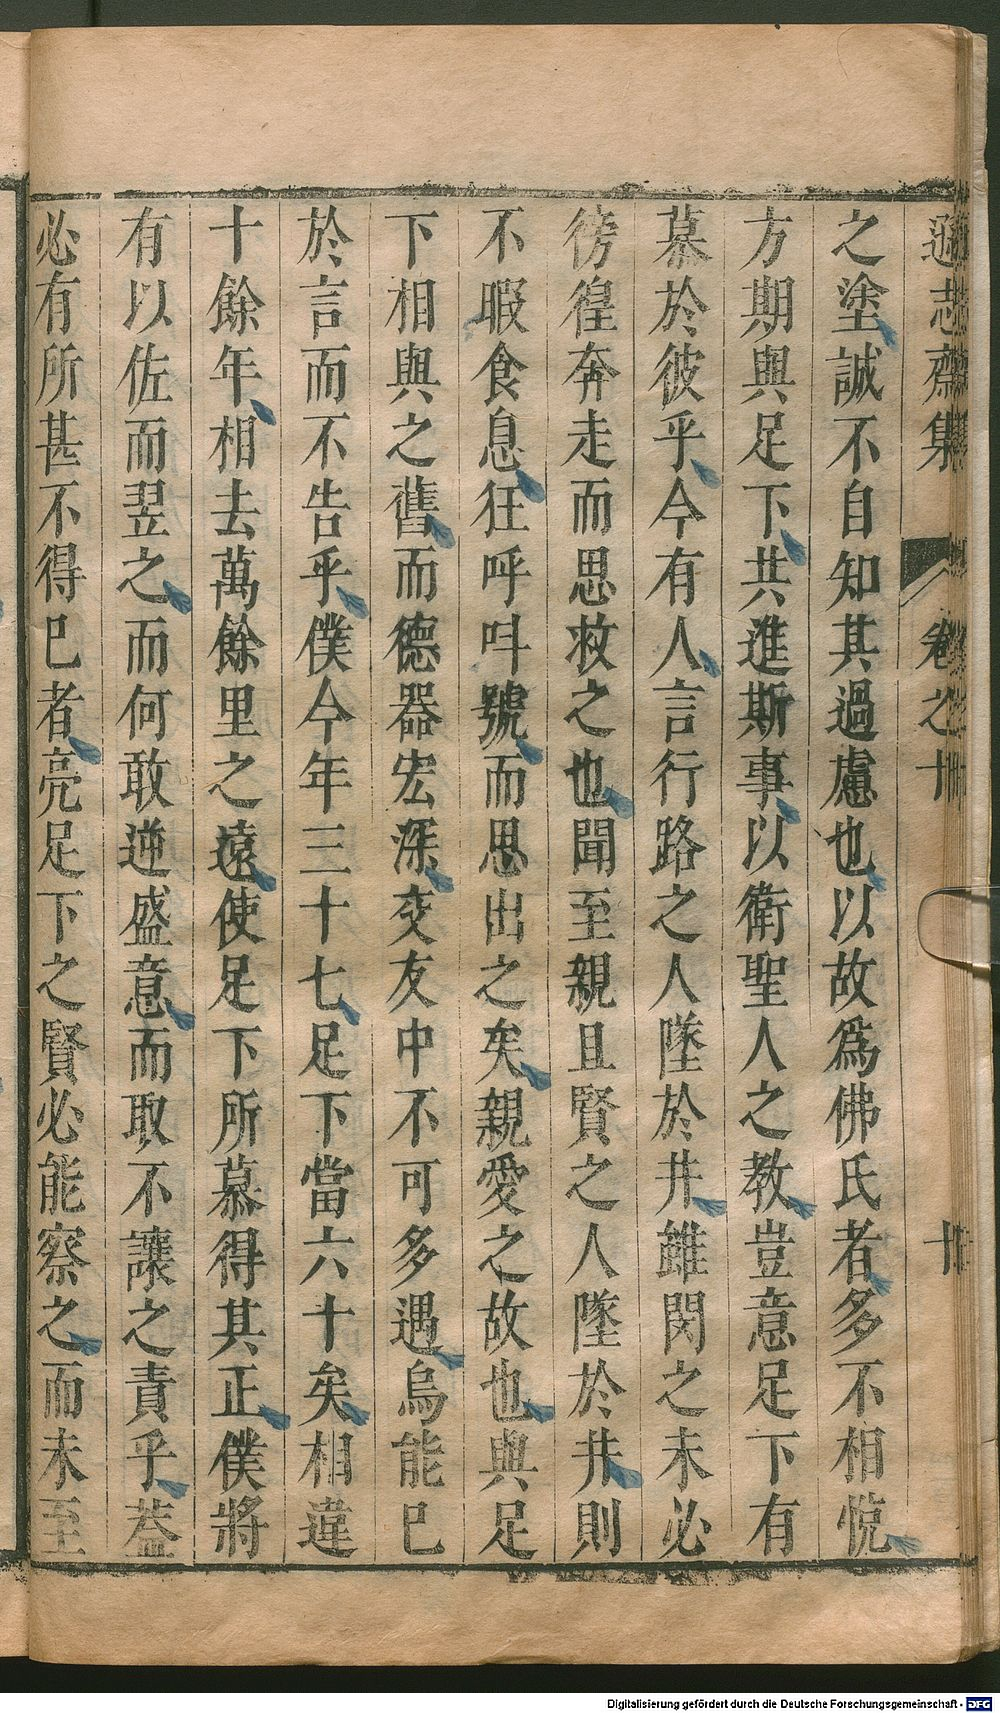 遜志齋集 卷之十 十
之塗誠不自知其過慮也以故爲佛氏者多不相悅
方期與足下共進斯事以衛聖人之教豈意足下有
慕於彼乎今有人言行路之人墜於井雖閔之未必
徬徨奔走而思救之也聞至親且賢之人墜於井則
不暇食息狂呼呌號而思出之矣親愛之故也與足
下相與之舊而德器宏深交友中不可多遇烏能已
於言而不告乎僕今年三十七足下當六十矣相違
十餘年相去萬餘里之遠使足下所慕得其正僕將
有以佐而翌之而何敢逆盛意而取不讓之責乎葢
必有所甚不得已者亮足下之賢必能察之而未至
Digitalisierung gefördert durch die Deutsche Forschungsgemeinschaft - DFG